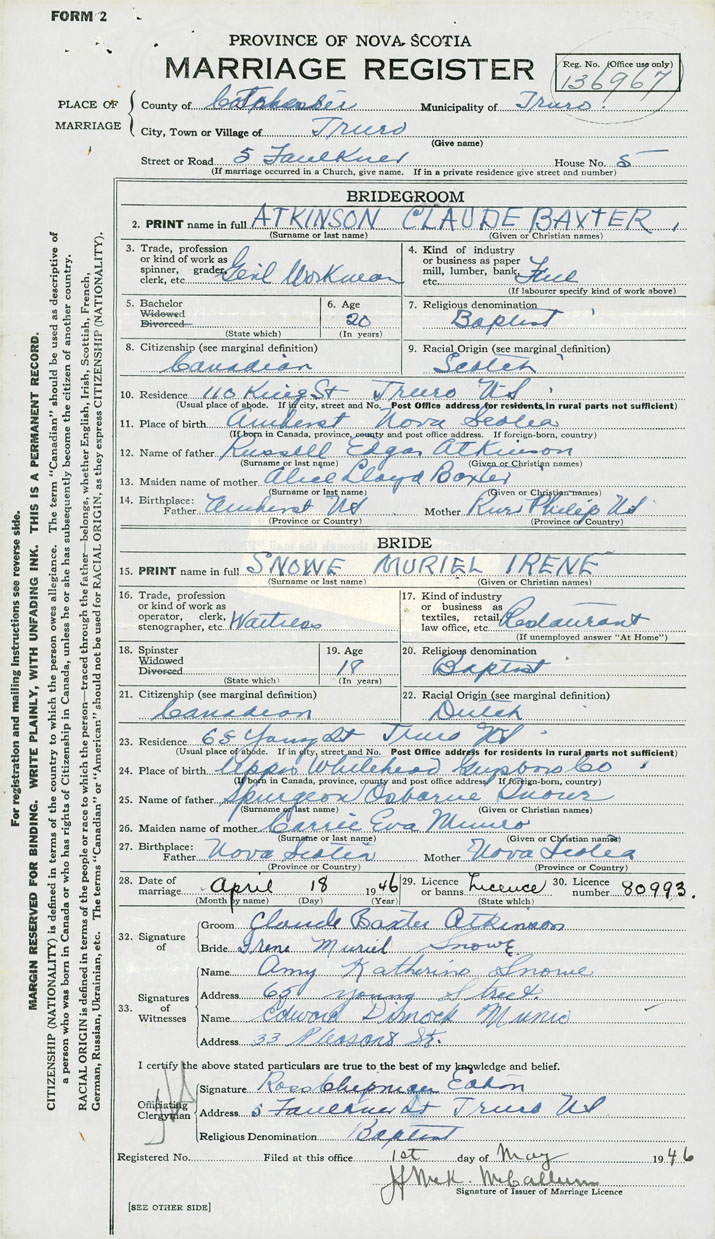 FORM 2
PROVINCE OF NOVA SCOTIA
MARRIAGE REGISTER
Reg. No. (Office use only)
136967
PLACE OF MARRIAGE
County of Colchester Municipality of Truro
City, Town or Village of Truro
(Give name)
Street or Road 5 Faulkner House No. 5
(If marriage occurred in a Church, give name. If in a private residence give street and number)
BRIDEGROOM
2. PRINT name in full ATKINSON CLAUDE BAXTER
(Surname or last name) (Given or Christian names)
3. Trade, profession or kind of work as spinner, grader, clerk, etc. Workman
4. Kind of industry or business as paper mill, lumber, bank, etc.
(If labourer specify kind of work above)
5. Bachelor Widowed Divorced
(State which)
6. Age 20
(In years)
7. Religious denomination
Baptist
8. Citizenship (see marginal definition)
Canadian
9. Racial Origin (see marginal definition)
Scotch
10. Residence 110 King St Truro NS
(Usual place of abode. If in city, street and No. Post Office address for residents in rural parts not sufficient)
11. Place of birth Amherst Nova Scotia
(If born in Canada, province, county and post office address. If foreign-born, country)
12. Name of father Russell Edgar Atkinson
(Surname or last name) (Given or Christian names)
13. Maiden name of mother Alice Lloyd Baxter
(Surname or last name) (Given or Christian names)
14. Birthplace: Father Amherst NS Mother River Philip NS
(Province or Country) (Province or Country)
BRIDE
15. PRINT name in full SNOWE MURIEL IRENE
(Surname or last name) (Given or Christian names)
16. Trade, profession or kind of work as operator, clerk, stenographer, etc. Waitress
17. Kind of industry or business as textiles, retail, law office, etc. Restaurant
(If unemployed answer "At Home")
18. Spinster Widowed Divorced
(State which)
19. Age 18
(In years)
20. Religious denomination
Baptist
21. Citizenship (see marginal definition)
Canadian
22. Racial Origin (see marginal definition)
Dutch
23. Residence 65 Young St Truro NS
(Usual place of abode. If in city, street and No. Post Office address for residents in rural parts not sufficient)
24. Place of birth Upper Whitehead Guysboro Co
(If born in Canada, province, county and post office address. If foreign-born, country)
25. Name of father Spurgeon Osborne Snowe
(Surname or last name) (Given or Christian names)
26. Maiden name of mother Carrie Eva Munro
(Surname or last name) (Given or Christian names)
27. Birthplace: Father Nova Scotia Mother Nova Scotia
(Province or Country) (Province or Country)
28. Date of marriage April 18 1946
(Month by name) (Day) (Year)
29. Licence or banns Licence
(State which)
30. Licence number 80993.
32. Signature of
Groom Claude Baxter Atkinson
Bride Irene Muriel Snowe
33. Signatures of Witnesses
Name Amy Katherine Snowe
Address 65 Young Street.
Name Edward Dimock Munro
Address 33 Pleasant St.
I certify the above stated particulars are true to the best of my knowledge and belief.
Officiating Clergyman
Signature Ross Chipman Eaton
Address 5 Faulkner St Truro NS
Religious Denomination Baptist
Registered No. Filed at this office 1st day of May 1946
McCallum
Signature of Issuer of Marriage Licence
[SEE OTHER SIDE]
For registration and mailing instructions see reverse side.
MARGIN RESERVED FOR BINDING. WRITE PLAINLY, WITH UNFADING INK. THIS IS A PERMANENT RECORD.
CITIZENSHIP (NATIONALITY) is defined in terms of the country to which the person owes allegiance. The term "Canadian" should be used as descriptive of
a person who was born in Canada or who has rights of Citizenship in Canada, unless he or she has subsequently become the citizen of another country.
RACIAL ORIGIN is defined in terms of the people or race to which the person—traced through the father—belongs, whether English, Irish, Scottish, French,
German, Russian, Ukrainian, etc. The terms "Canadian" or "American" should not be used for RACIAL ORIGIN, as they express CITIZENSHIP (NATIONALITY).